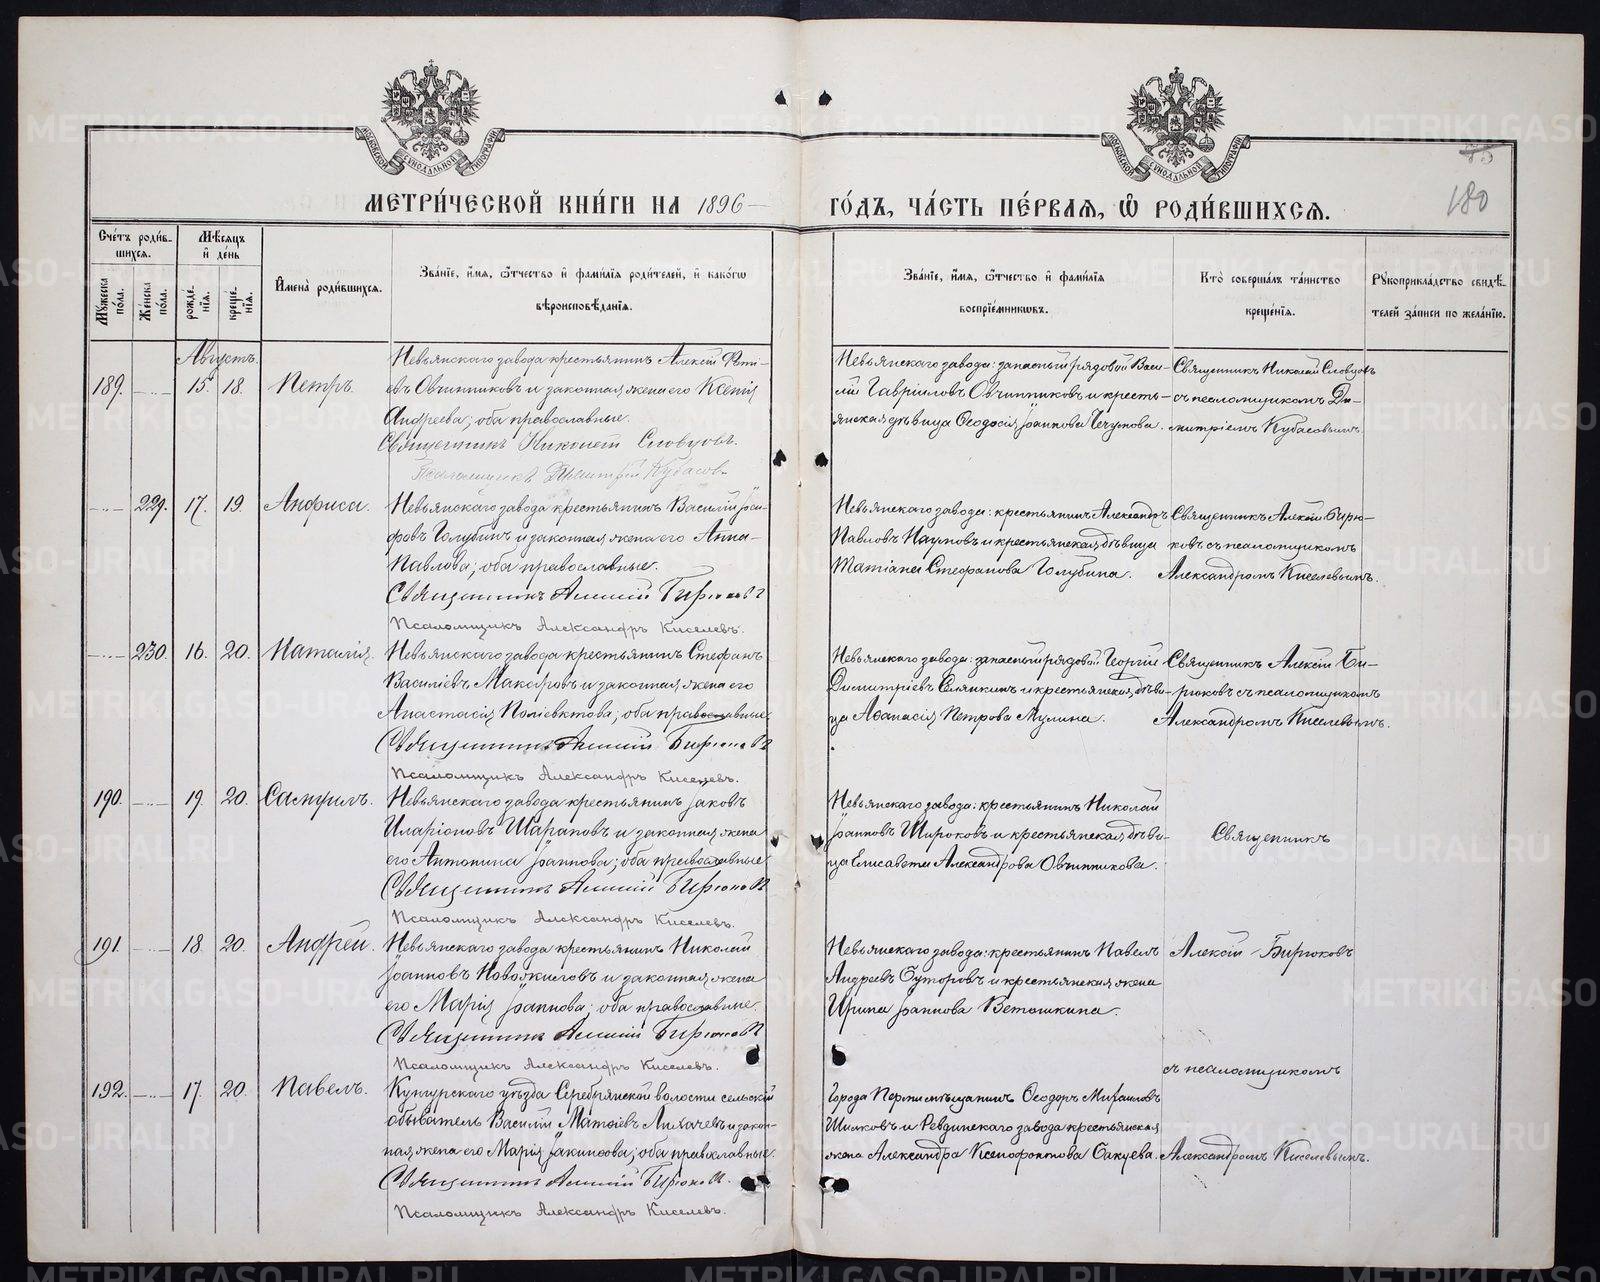 МЕТРИ́ЧЕСКОЙ КНИ́ГИ НА 1896
ГО́ДЪ, ЧА́СТЬ ПЕ́РВАЯ, Ѡ РОДИ́ВШИХСЯ.
180
Сче́тъ роди́в-
шихся.
Мꙋжеска по́ла.
Же́нска по́ла.
Мѣ́сяцъ и де́нь
рожде́нїя.
креще́нїя.
Имена̀ роди́вшихся.
Зва́нїе, и́мя, ѻ҆́тчество и фами́лїя роди́телей, и како́гѡ
вѣроисповѣ́данїя.
Зва́нїе, и́мя, ѻ҆́тчество и фами́лїя
воспрїе́мниковъ.
Кто̀ соверша́лъ та́инство
креще́нїя.
Рꙋкоприкла́дство свидѣ́-
телей за́писи по жела́нїю.
Августъ.
189. 15. 18. Петръ.
Невьянскаго завода крестьянинъ Алексій Фоті-
евъ Овчинниковъ и законная жена его Ксенія
Андреева; оба православные.
Священникъ Николай Словцовъ.
Псаломщикъ Димитрій Кубасовъ
Невьянскаго завода: запасный рядовой Васи-
лій Гавріиловъ Овчинниковъ и кресть-
янская дѣвица Ѳеодосія Іоаннова Чечулова.
Священникъ Николай Словцовъ
съ псаломщикомъ Ди-
митріемъ Кубасовымъ.
229. 17. 19. Анфиса.
Невьянскаго завода крестьянинъ Василій
Голубинъ и законная жена его Анна
Павлова; оба православные.
Священникъ Алексій Бирюковъ
Псаломщикъ Александръ Киселевъ.
Невьянскаго завода: крестьянинъ Александръ
Павловъ Наумовъ и крестьянская дѣвица
Татіана Стефанова Голубина.
Священникъ Алексій Бирю-
ковъ съ псаломщикомъ
Александромъ Киселевымъ.
230. 16. 20. Наталія.
Невьянскаго завода крестьянинъ Стефанъ
Василіевъ Макаровъ и законная жена его
Анастасія Поліевктова; оба православные
Священникъ Алексій Бирюковъ
Псаломщикъ Александръ Киселевъ.
Невьянскаго завода: запасный рядовой Георгій
Димитріевъ Селянкинъ и крестьянская дѣви-
ца Аѳанасія Петрова Мулина.
Священникъ Алексій Би-
рюковъ съ псаломщикомъ
Александромъ Киселевымъ.
190. 19. 20. Самуилъ.
Невьянскаго завода крестьянинъ Іаковъ
Иларіоновъ Шараповъ и законная жена
его Антонина Іоаннова; оба православные
Священникъ Алексій Бирюковъ
Псаломщикъ Александръ Киселевъ.
Невьянскаго завода: крестьянинъ Николай
Іоанновъ Широковъ и крестьянская дѣви-
ца Елисавета Александрова Овчинникова.
Священникъ
191. 18. 20. Андрей.
Невьянскаго завода крестьянинъ Николай
Іоанновъ Новожиловъ и законная жена
его Марія Іоаннова; оба православные.
Священникъ Алексій Бирюковъ
Псаломщикъ Александръ Киселевъ.
Невьянскаго завода: крестьянинъ Павелъ
Андреевъ Суторовъ и крестьянская жена
Ирина Іоаннова Ветошкина.
Алексій Бирюковъ
съ псаломщикомъ
192. 17. 20. Павелъ.
Кунгурскаго уѣзда Серебрянской волости сельскій
обыватель Василій Матѳіевъ Лихачевъ и закон-
ная жена его Марія Іакинѳова; оба православные.
Священникъ Алексій Бирюковъ.
Псаломщикъ Александръ Киселевъ.
Города Перми мѣщанинъ Ѳеодоръ Михаиловъ
Шилковъ и Ревдинскаго завода крестьянская
жена Александра Ксенофонтова Бакуева.
Александромъ Киселевымъ.
METRIKI.GASO-URAL.RU